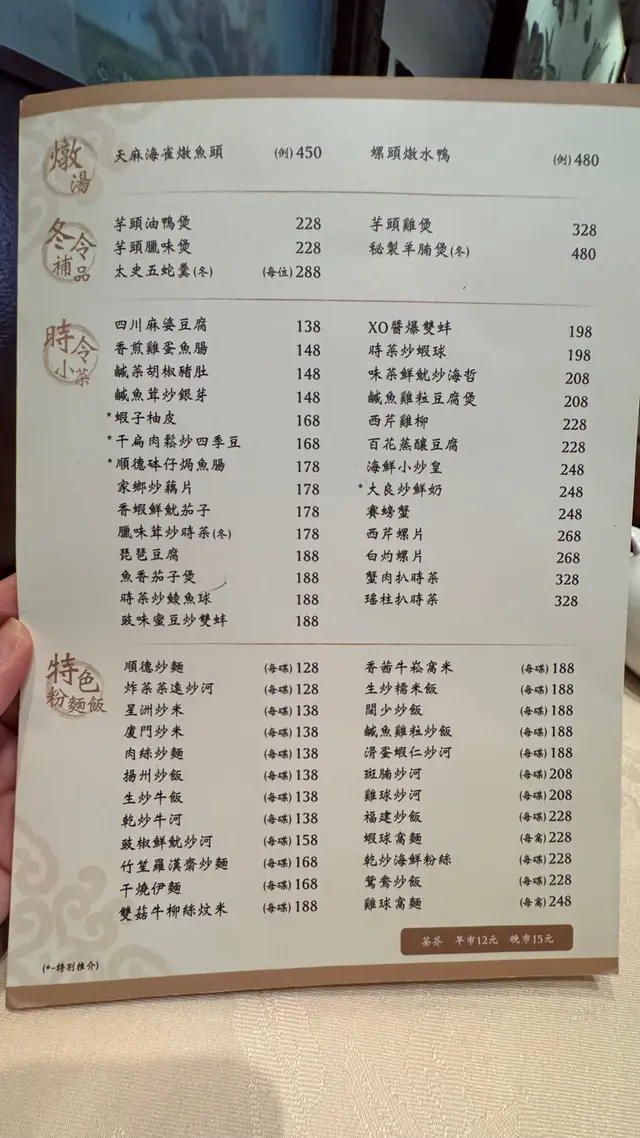 燉湯
天麻海雀燉魚頭 (例) 450
螺頭燉水鴨 (例) 480
冬令補品
芋頭油鴨煲 228
芋頭臘味煲 228
太史五蛇羹(冬) (每位) 288
芋頭雞煲 328
秘製羊腩煲(冬) 480
時令小菜
四川麻婆豆腐 138
香煎雞蛋魚腸 148
鹹菜胡椒豬肚 148
鹹魚茸炒銀芽 148
*蝦子柚皮 168
*干扁肉鬆炒四季豆 168
*順德砵仔焗魚腸 178
家鄉炒藕片 178
香蝦鮮魷茄子 178
臘味茸炒時菜(冬) 178
琵琶豆腐 188
魚香茄子煲 188
時菜炒鯪魚球 188
豉味蜜豆炒雙蚌 188
XO醬爆雙蚌 198
時菜炒蝦球 198
味菜鮮魷炒海哲 208
鹹魚雞粒豆腐煲 208
西芹雞柳 228
百花蒸釀豆腐 228
海鮮小炒皇 248
*大良炒鮮奶 248
賽螃蟹 248
西芹螺片 268
白灼螺片 268
蟹肉扒時菜 328
瑤柱扒時菜 328
特色粉麵飯
順德炒麵 (每碟) 128
炸菜菜遠炒河 (每碟) 128
星洲炒米 (每碟) 138
廈門炒米 (每碟) 138
肉絲炒麵 (每碟) 138
揚州炒飯 (每碟) 138
生炒牛飯 (每碟) 138
乾炒牛河 (每碟) 138
豉椒鮮魷炒河 (每碟) 158
竹笙羅漢齋炒麵 (每碟) 168
干燒伊麵 (每碟) 168
雙菇牛柳絲炆米 (每碟) 188
香茜牛崧窩米 (每碟) 188
生炒糯米飯 (每碟) 188
闊少炒飯 (每碟) 188
鹹魚雞粒炒飯 (每碟) 188
滑蛋蝦仁炒河 (每碟) 188
斑腩炒河 (每碟) 208
雞球炒河 (每碟) 208
福建炒飯 (每碟) 228
蝦球窩麵 (每窩) 228
乾炒海鮮粉絲 (每碟) 228
鴛鴦炒飯 (每碟) 228
雞球窩麵 (每窩) 248
茶芥 早市12元 晚市15元
(*-特別推介)